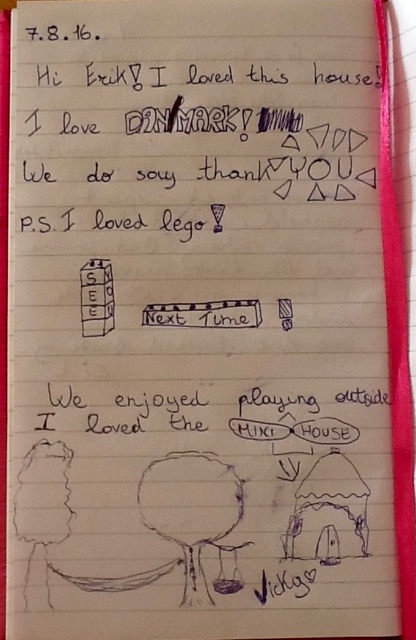 7.8.16.
Hi Erik! I loved this house!
I love DANMARK!
We do say thank YOU
P.S. I loved lego!
SEE YOU
Next Time!
We enjoyed playing outside
I loved the MINI HOUSE
Vicky